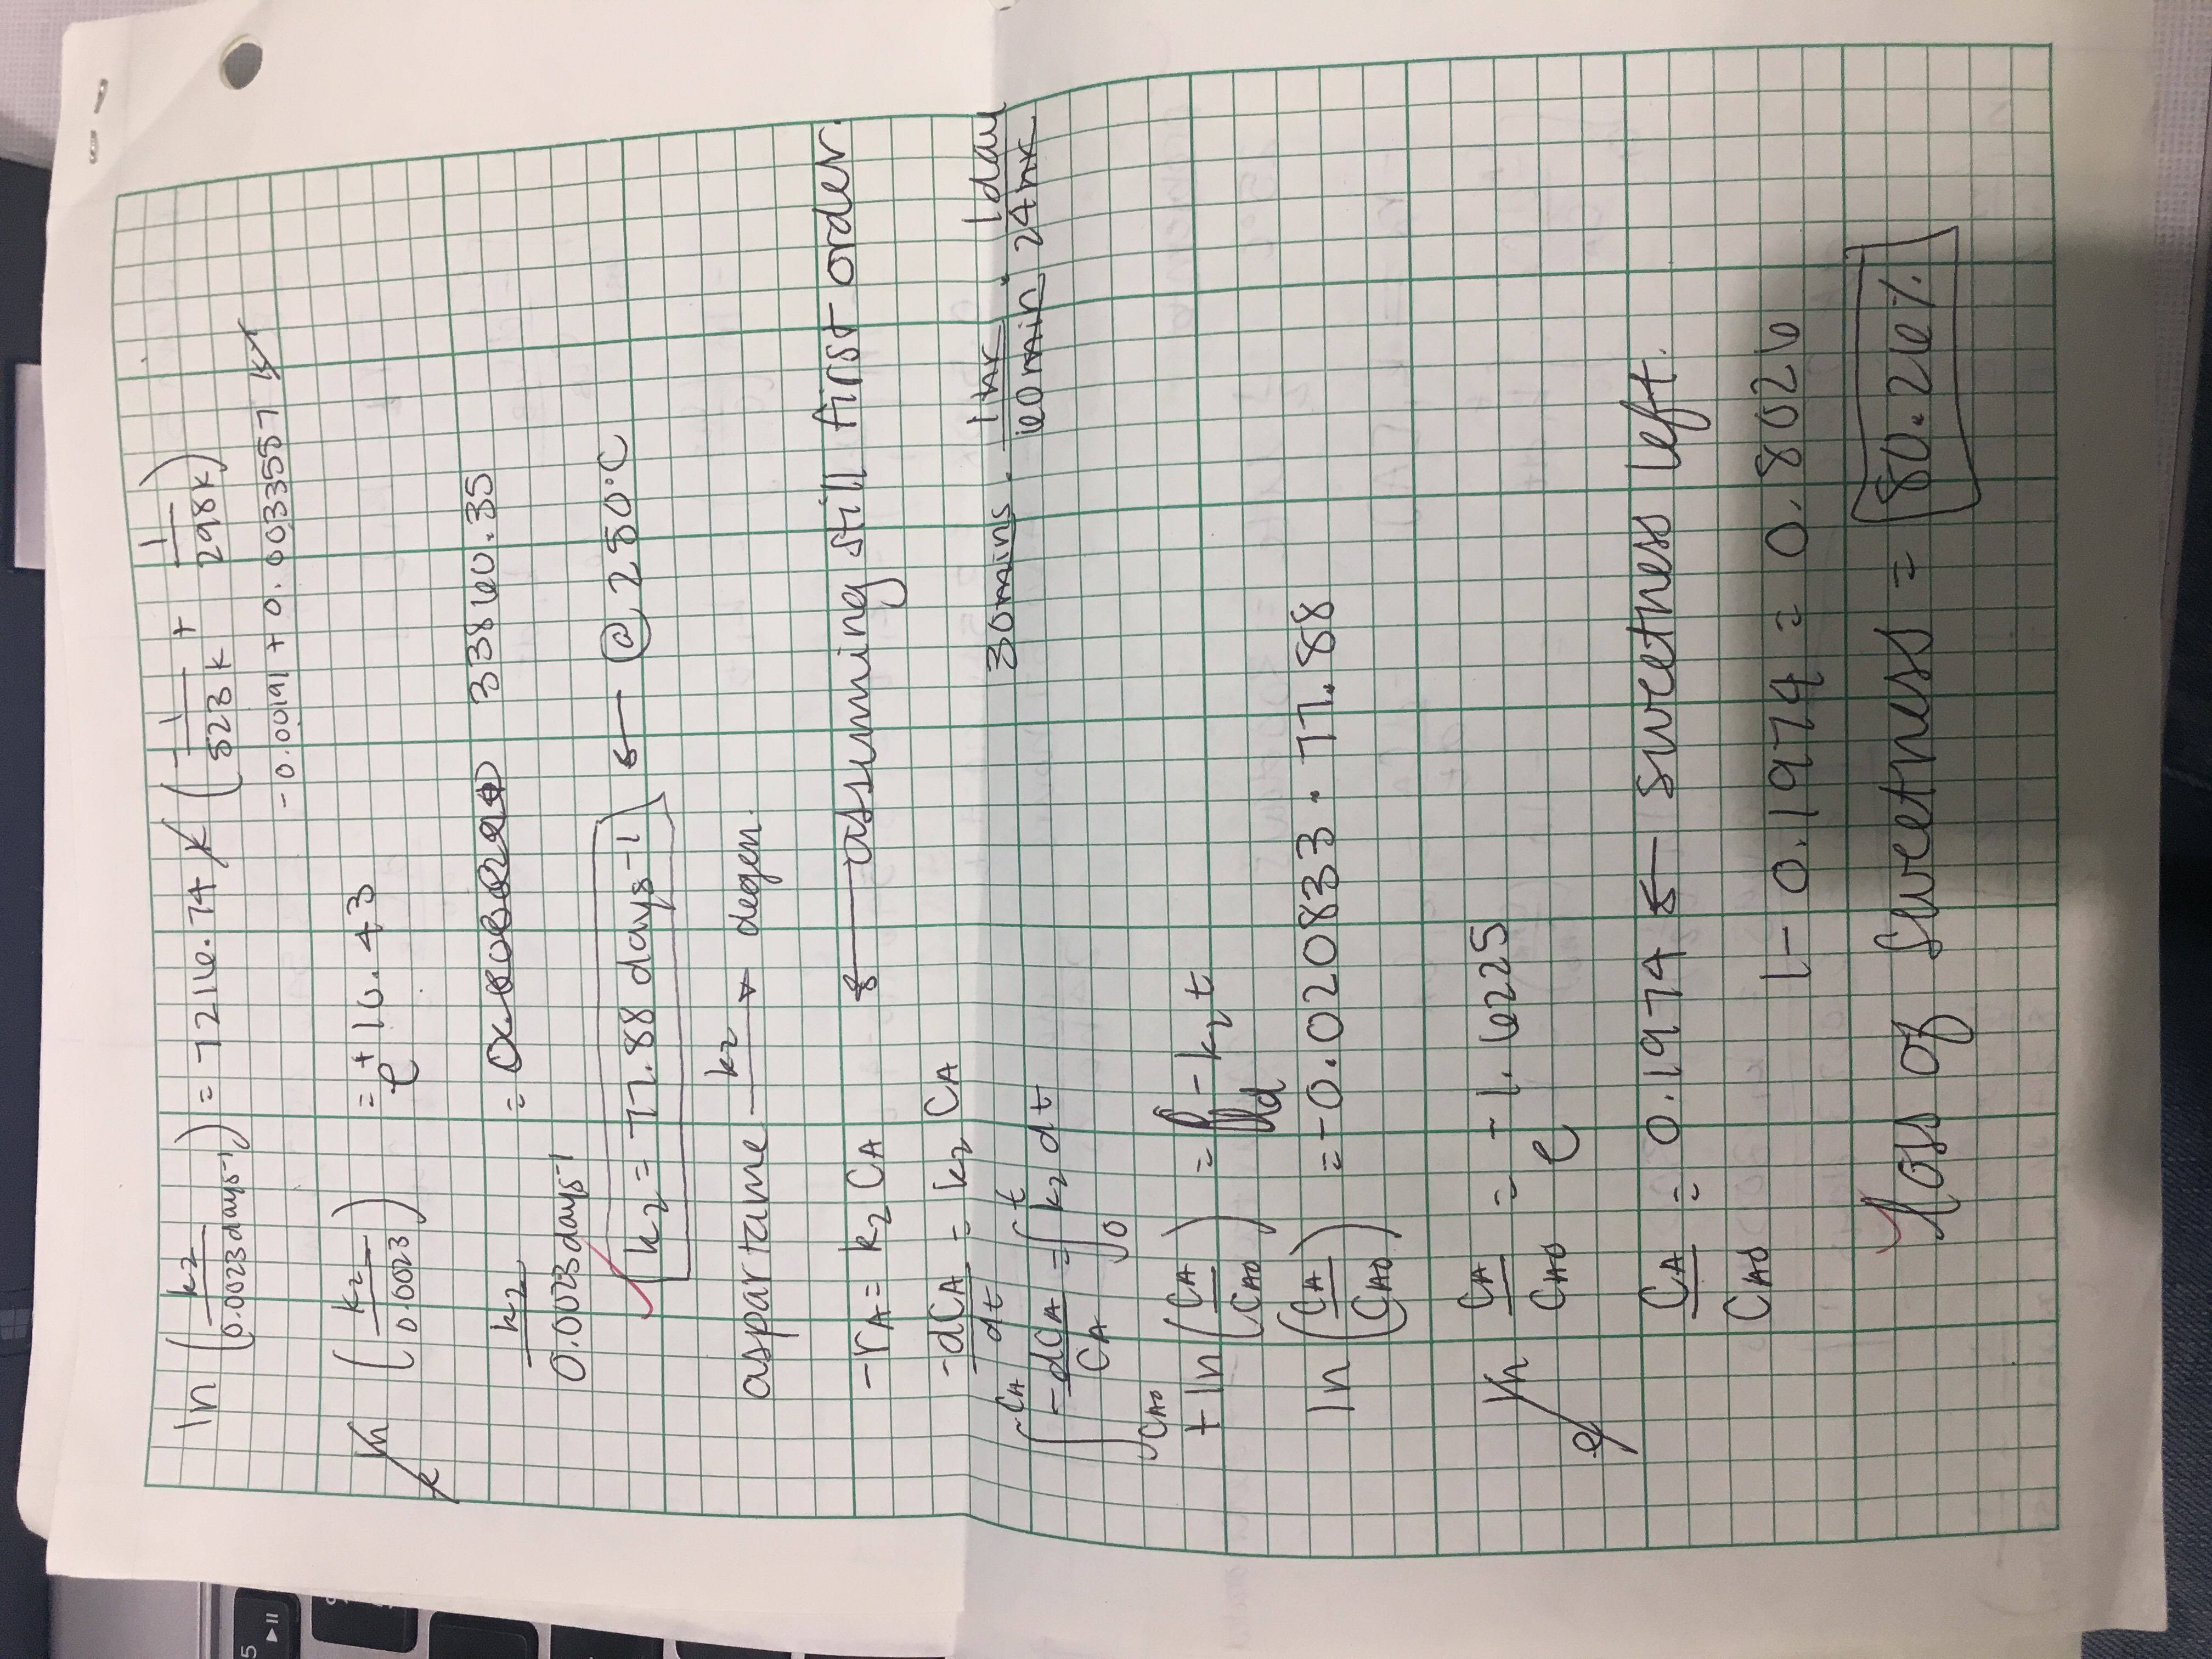 ln (k2 / 0.0023 days-1) = 7216.74 K (-1 / 523 K + 1 / 298K)
-0.00191 + 0.0033557 K-1
ln (k2 / 0.0023) = e +10.43
k2 / 0.0023 days-1 = 33860.35
k2 = 77.88 days-1 ← @ 250°C
aspartame —k2→ degen.
-rA = k2 CA ← assuming still first order.
-dCA / dt = k2 CA
30mins · 1 hr / 60 min · 1 day / 24 hr
∫CA0^CA -dCA / CA = ∫0^t k2 dt
+ ln (CA / CA0) = -k2 t
ln (CA / CA0) = -0.020833 · 77.88
e ln CA / CA0 = e -1.6225
CA / CA0 = 0.1974 ← sweetness left.
1 - 0.1974 = 0.8026
loss of sweetness = 80.26%